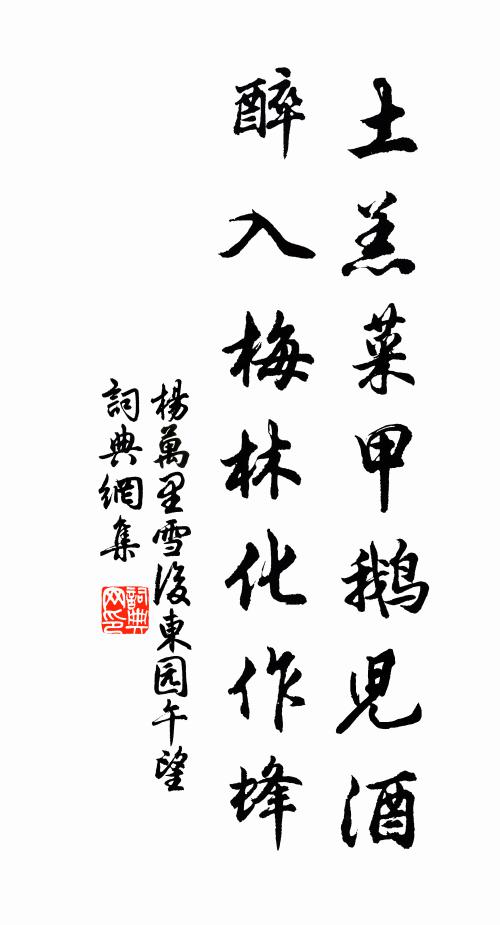 土羔菜甲鹅兒酒
醉入梅林化作蜂
楊萬里雪後東园午望
詞典網集
詞典网印